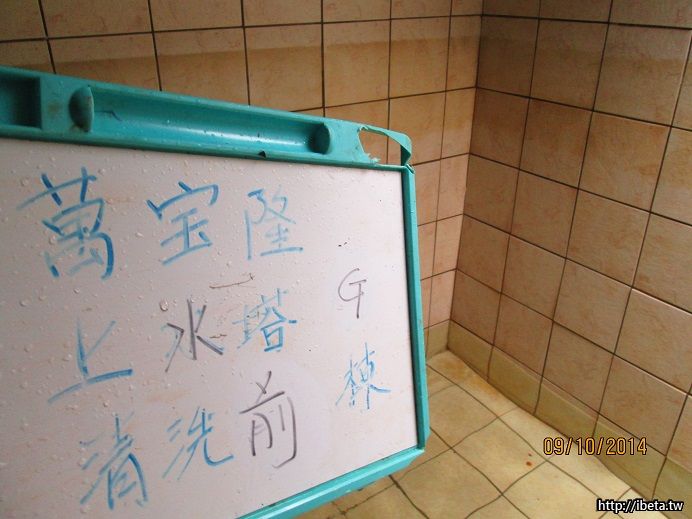 萬宝隆
上水塔 G棟
清洗前
09/10/2014
http://ibeta.tw